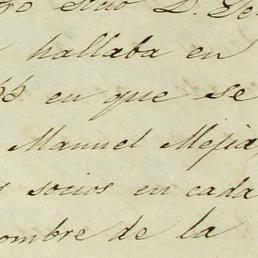 D.
hallaba en
en que se
Manuel Mejia,
socios en cada
ombre de la